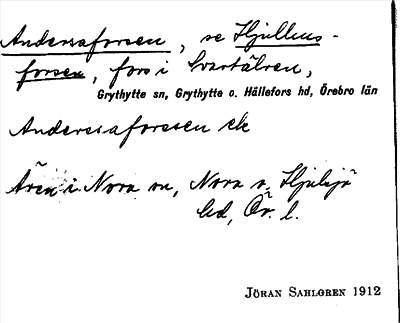 Andersaforsen, se Hjullens-
forsen, fors i Svartälven,
Grythytte sn, Grythytte o. Hällefors hd, Örebro län
Anderssaforssen ek
Åren i Nora sn, Nora o. Hjulsjö
hd, Ör. l.
JÖRAN SAHLGREN 1912